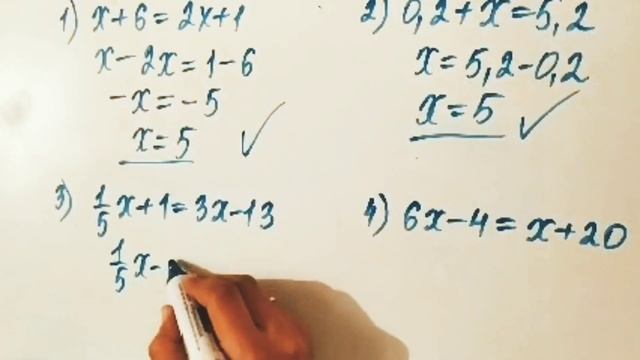 1) x+6=2x+1
x-2x=1-6
-x=-5
x=5 ✓
2) 0,2+x=5,2
x=5,2-0,2
x=5 ✓
3) 1/5 x+1=3x-13
1/5 x-
4) 6x-4=x+20